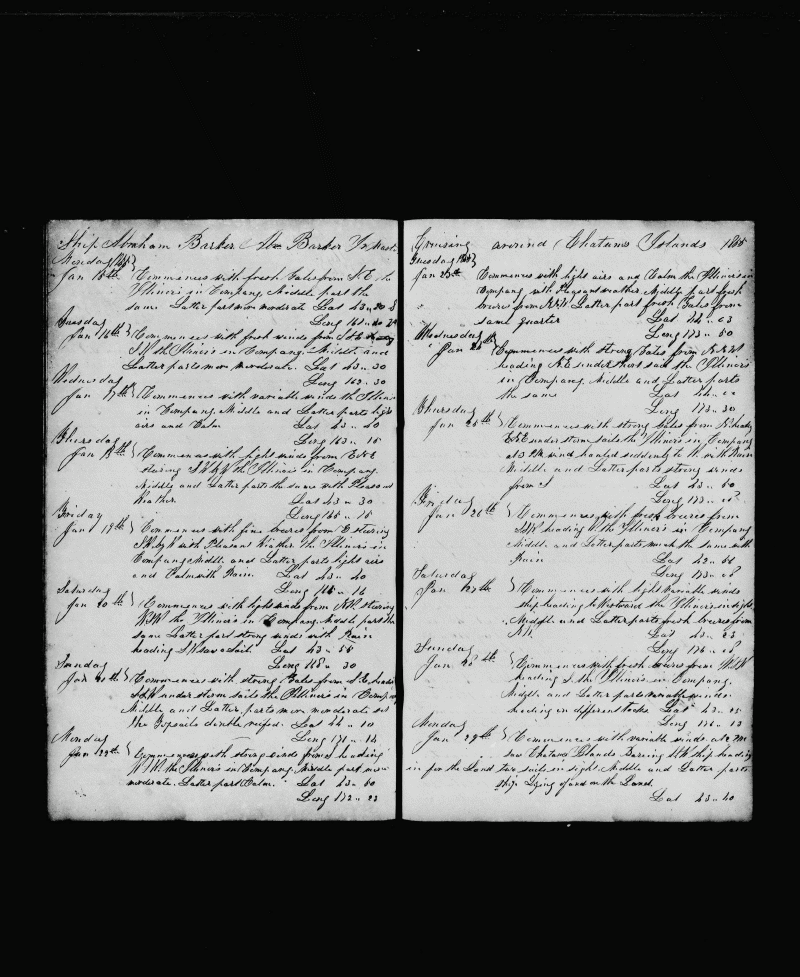 Ship Abraham Barker Barker Master
Monday 1844
Jan 15th Commences with fresh Gales from N.E. the
Illinois in Company Middle part the
same Latter part more moderate Lat 43..20 S
Tuesday Long 161..
Jan 16th Commences with fresh winds from
the Illinois in Company Middle and
Latter parts more moderate. Lat 43..30
Wednesday Long 163..30
Jan 17th Commences with variable winds the Illinois
in Company Middle and Latter parts light
airs and Calm Lat 43..40
Thursday Long 163..15
Jan 18th Commences with light winds from ENE
steering the Illinois in Company
Middle and Latter parts the same with Pleasant
Weather. Lat 43..30
Friday Long 165..15
Jan 19th Commences with fine breezes from E steering
with Pleasant Weather the Illinois in
Company Middle and Latter parts light airs
and Calm with Rain. Lat 43..40
Saturday Long 16
Jan 20th Commences with light winds from steering
WSW the Illinois in Company. Middle part the
same Latter part strong winds with Rain
heading Lat 43..58
Sunday Long 168..30
Jan 21th Commences with strong Gales from S.E. heading
under storm sails the Illinois in Company
Middle and Latter parts more moderate set
the Topsails double reefed. Lat 44..10
Monday Long 171..14
Jan 22th Commences with strong winds from heading
the Illinois in Company. Middle part more
moderate. Latter part Calm. Lat 43..50
Long 172..23
Cruising around Chatums Islands 18
Tuesday
Jan 23th Commences with light airs and Calm the Illinois in
Company with Pleasant weather. Middle part fresh
breezes from NNW Latter part fresh Gales from
same quarter Lat 44..03
Wednesday Long 173..50
Jan 24th Commences with strong Gales from N.N.W
heading N.E. under short sail the Illinois
in Company Middle and Latter parts
the same Lat 44..
Thursday Long 173..30
Jan 25th Commences with strong Gales from heading
ENE under storm sails the Illinois in Company
at 3 PM wind hauled suddenly to W. with Rain
Middle and Latter parts strong winds
from S Lat 43..50
Friday Long 173..
Jan 26th Commences with fresh breezes from
heading the Illinois in Company
Middle and Latter parts much the same with
Rain Lat 42..56
Saturday Long 173..06
Jan 27th Commences with light Variable winds
ship heading to Westward the Illinois in sight
Middle and Latter parts fresh breezes from
Lat 43..23
Sunday Long 176..
Jan 28th Commences with fresh breezes from
heading S the Illinois in Company.
Middle and Latter parts variable winds
heading on different tacks Lat 43..25
Monday Long 176..13
Jan 29th Commences with variable winds at 2 PM
saw Chatum Islands Bearing ship heading
in for the Land two sails in sight Middle and Latter parts
ship Lying off and on the Land.
Lat 43..40